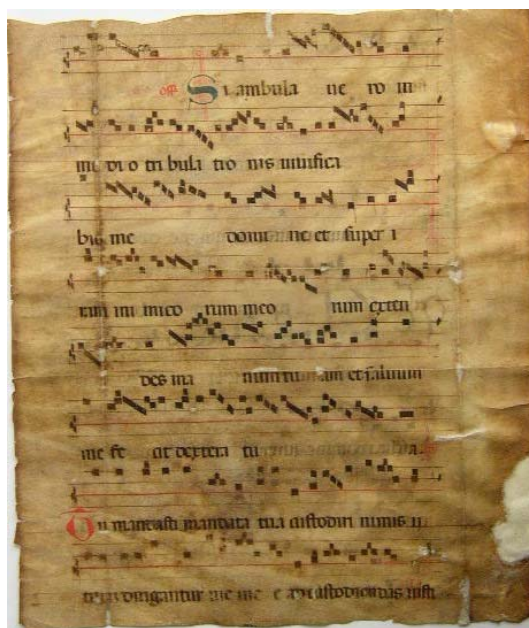 off Si ambula ue ro in
me di o tri bula tio nis uiuifica
bis me domi ne et super i
ram ini mico rum meo rum exten
des ma num tu am et saluum
me fe cit dextera tu a.
Tu mandasti mandata tua custodiri nimis u
dirigantur uie me e ad custodiendas iusti